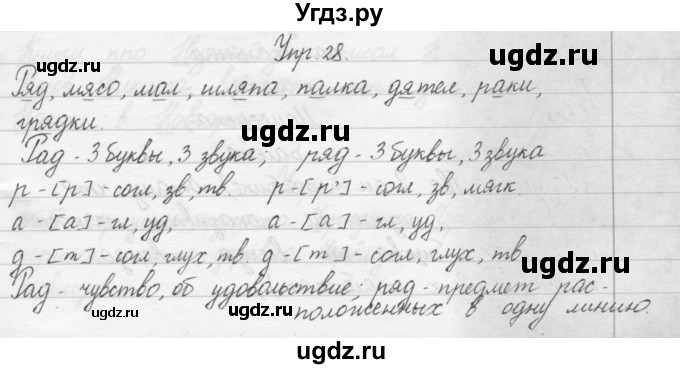 Угдз.ру
Упр 28.
Ряд, мясо, мал, шляпа, палка, дятел, раки,
грядки.
Рад - 3 буквы, 3 звука, ряд - 3 буквы, 3 звука
р - [р] - согл, зв, тв. р - [р'] - согл, зв, мягк.
а - [а] - гл, уд, а - [а] - гл, уд,
д - [т] - согл, глух, тв. д - [т] - согл, глух, тв
Рад - чувство, об удовольствие; ряд - предмет рас-
положенных в одну линию.
ugdz.ru
ugdz.ru
ugdz.ru
ugdz.ru
ugdz.ru
ugdz.ru
ugdz.ru
ugdz.ru
ugdz.ru
ugdz.ru